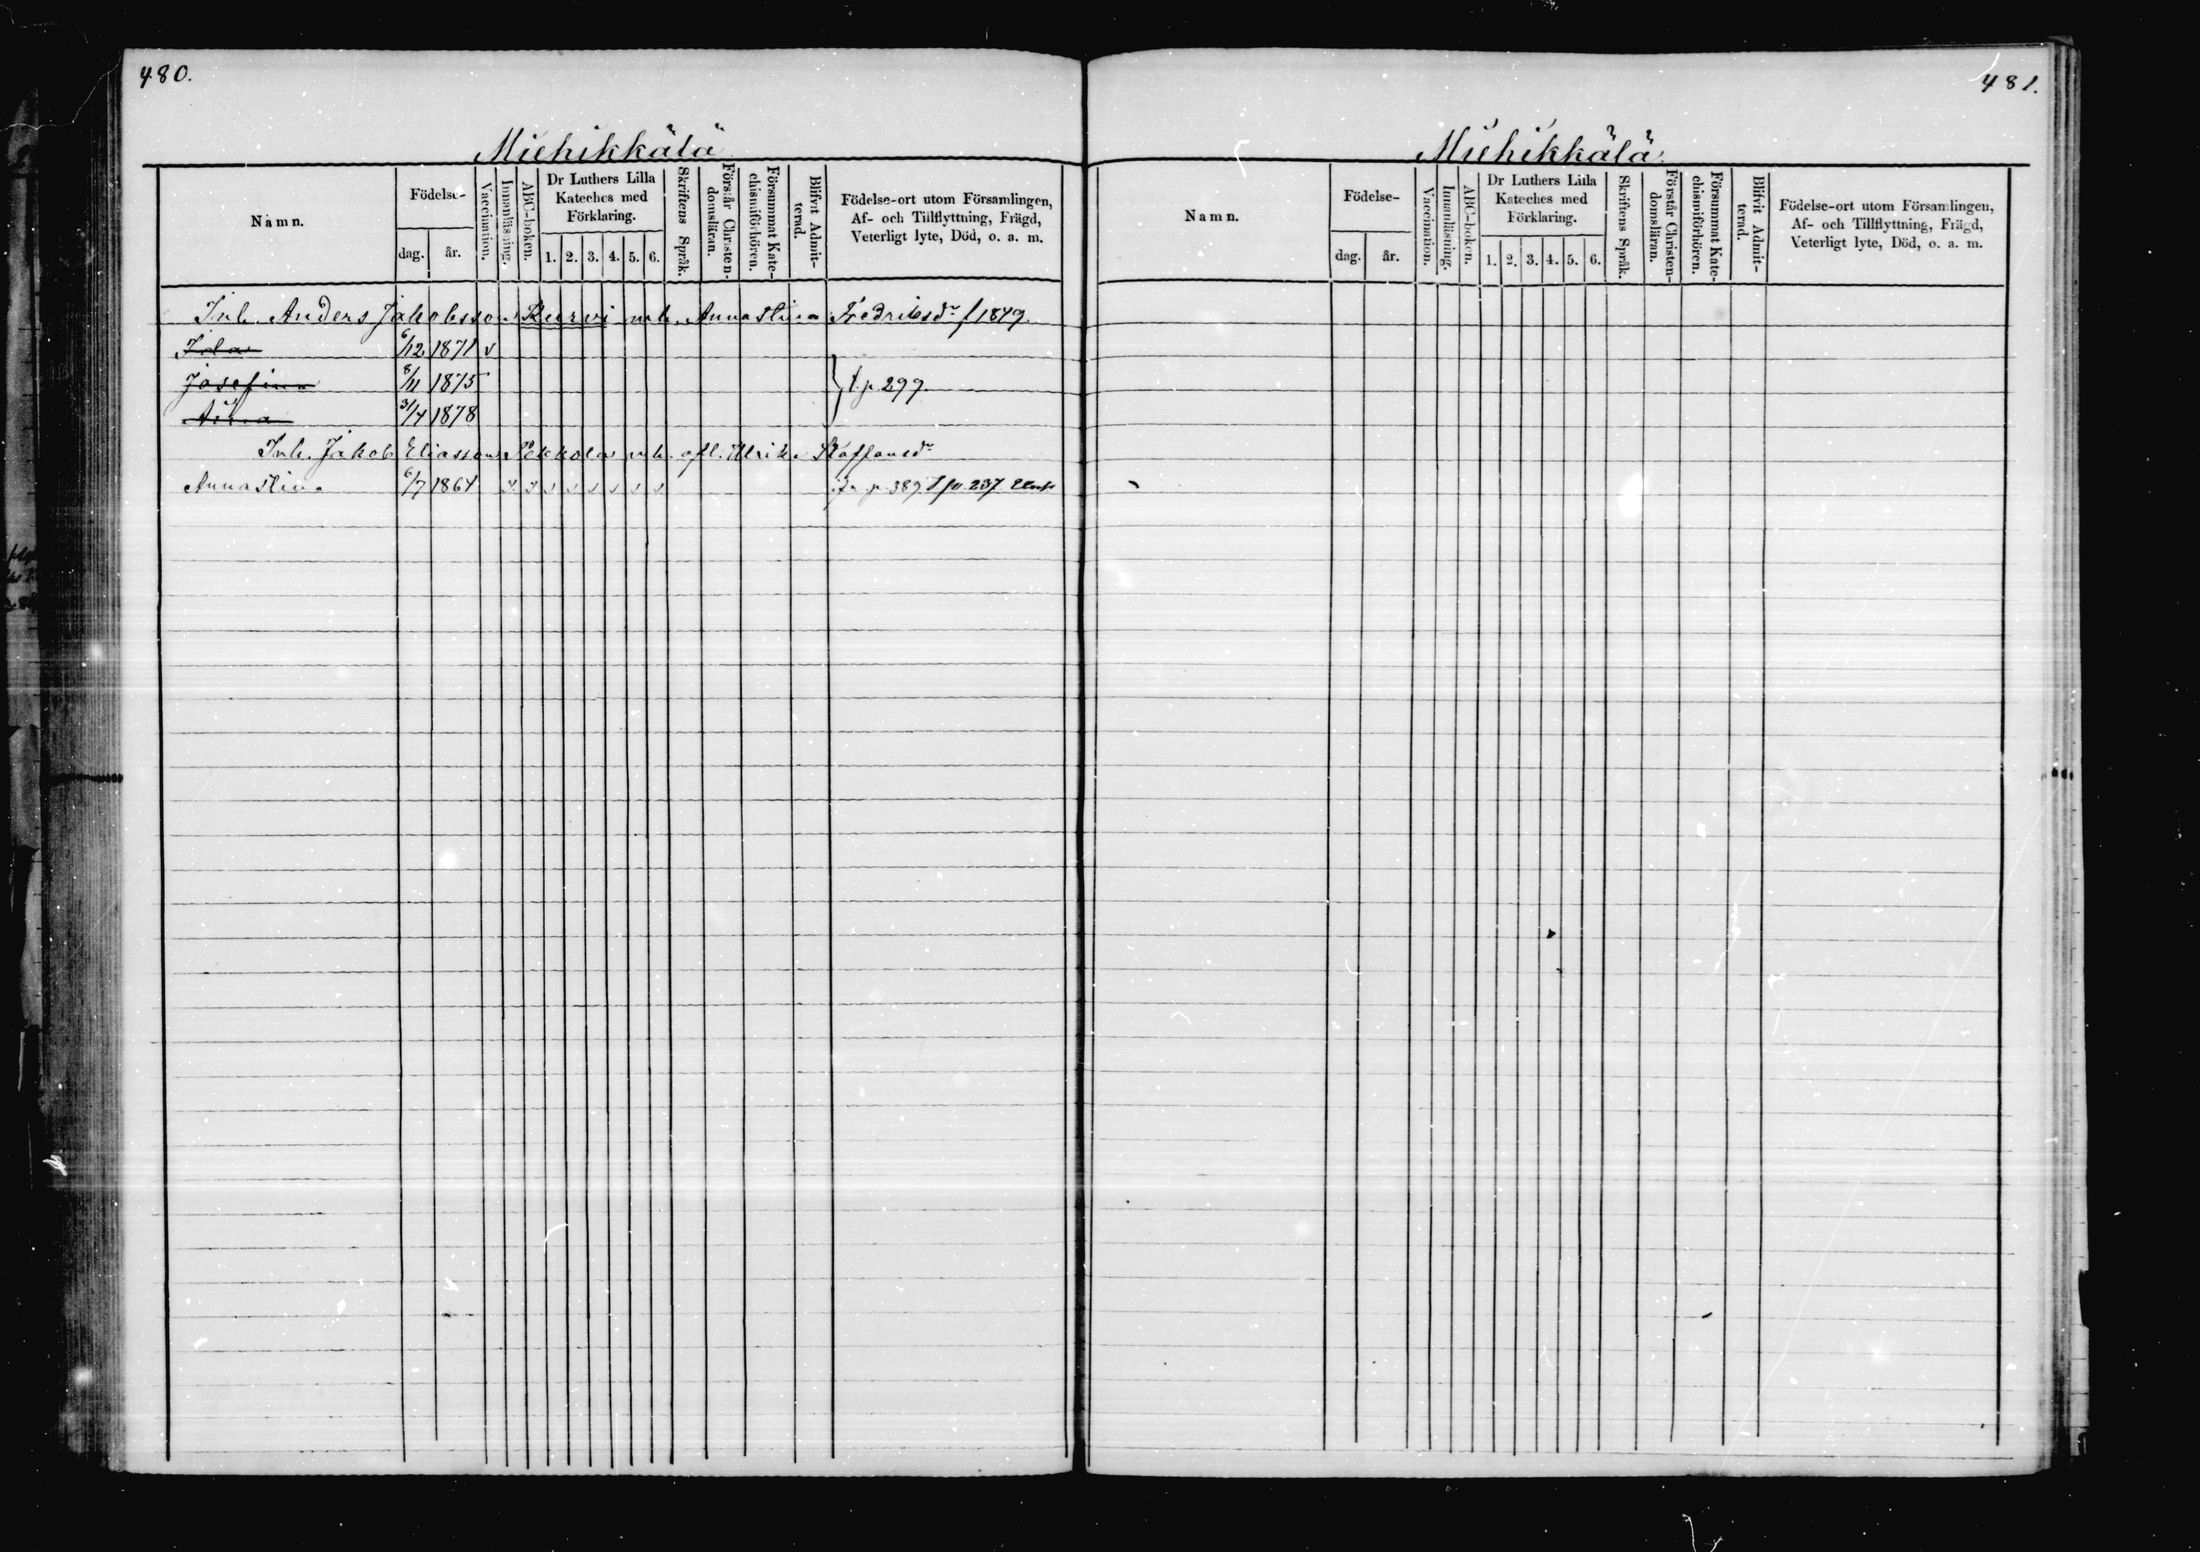 480.
Miehikkälä
Namn.
Födelse-
dag.
år.
Vaccination.
Innanläsning.
ABC-boken.
Dr Luthers Lilla
Kateches med
Förklaring.
1. 2. 3. 4. 5. 6.
Skriftens Språk.
Förstår Christen-
domsläran.
Försummat Kate-
chismiförhören.
Blifvit Admit-
terad.
Födelse-ort utom Församlingen,
Af- och Tillflyttning, Frägd,
Veterligt lyte, Död, o. a. m.
Inh. Anders Jakobsson Kurvi m h. Anna Stina Fredriksdr f 1849.
Ida 6/12 1871 v
Josefina 8/11 1875
t. p. 299
Aina 31/7 1878
Inh. Jakob Eliasson Pekkola m h. afl. Ulrika Staffansdr
Anna Stina 6/7 1864 fr p. 389. t p. 237
481.
Miehikkälä
Namn.
Födelse-
dag.
år.
Vaccination.
Innanläsning.
ABC-boken.
Dr Luthers Lilla
Kateches med
Förklaring.
1. 2. 3. 4. 5. 6.
Skriftens Språk.
Förstår Christen-
domsläran.
Försummat Kate-
chismiförhören.
Blifvit Admit-
terad.
Födelse-ort utom Församlingen,
Af- och Tillflyttning, Frägd,
Veterligt lyte, Död, o. a. m.